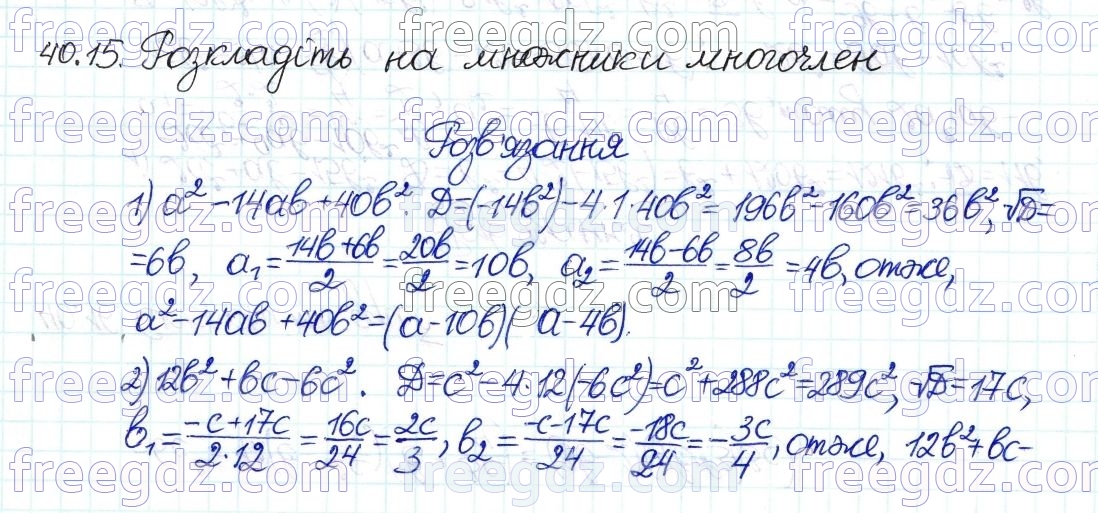 40.15. Розкладіть на множники многочлен
Розв'язання
1) a² - 14ab + 40b². D = (-14b²) - 4·1·40b² = 196b² - 160b² = 36b², √D =
= 6b, a₁ = (14b + 6b)/2 = 20b/2 = 10b, a₂ = (14b - 6b)/2 = 8b/2 = 4b, отже,
a² - 14ab + 40b² = (a - 10b)(a - 4b).
2) 12b² + bc - 6c². D = c² - 4·12(-6c²) = c² + 288c² = 289c², √D = 17c,
b₁ = (-c + 17c)/(2·12) = 16c/24 = 2c/3, b₂ = (-c - 17c)/24 = -18c/24 = -3c/4, отже, 12b² + bc -
freegdz.com freegdz.com freegdz.com